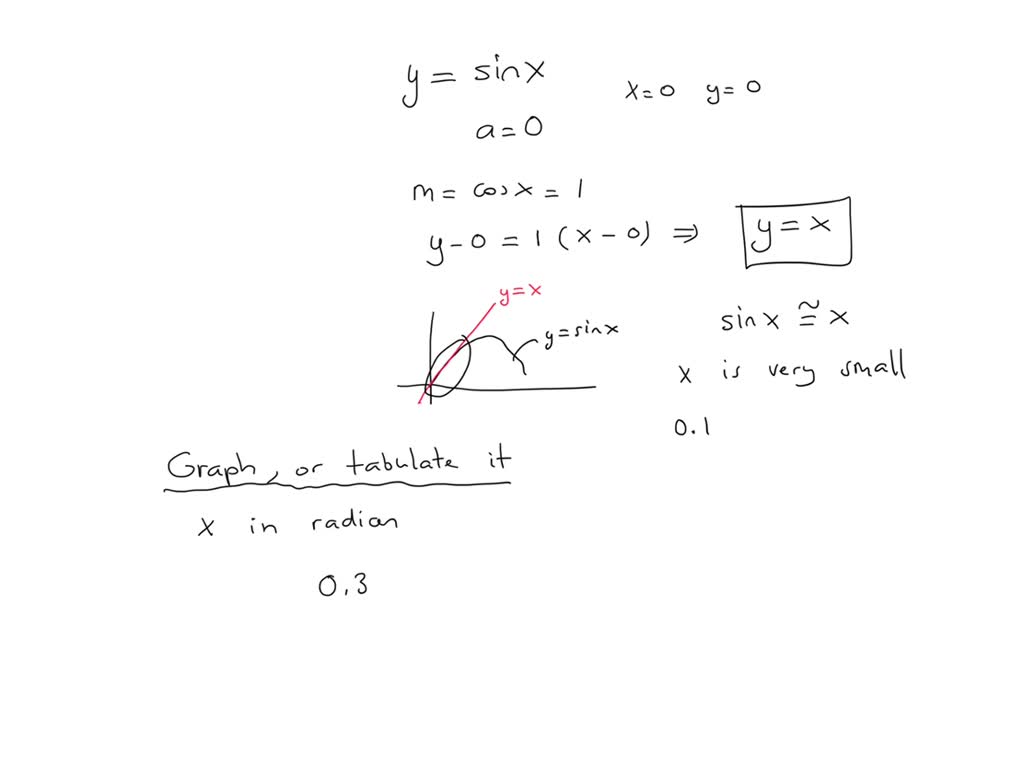 y = sinx
x=0 y=0
a=0
m = cosx = 1
y-0 = 1 (x-0) ⇒ y=x
y=x
y=sinx
sinx ≅ x
x is very small
0.1
Graph, or tabulate it
x in radian
0.3